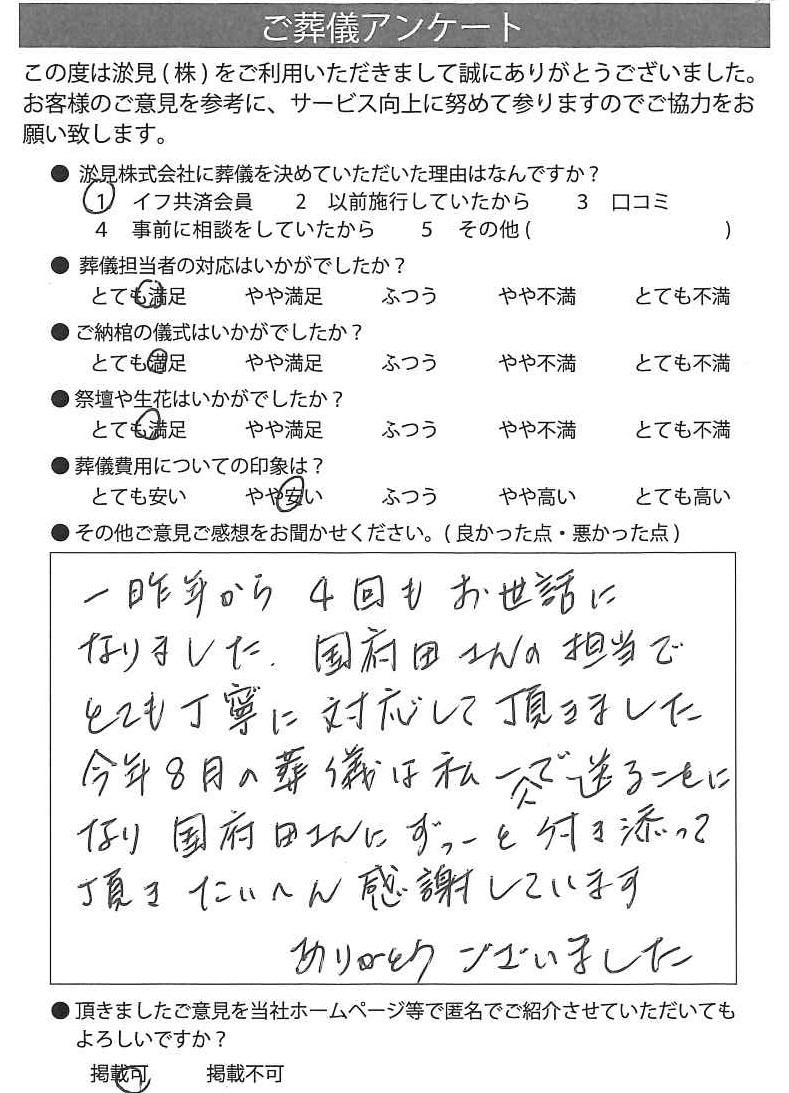 ご葬儀アンケート
この度は淤見(株)をご利用いただきまして誠にありがとうございました。
お客様のご意見を参考に、サービス向上に努めて参りますのでご協力をお
願い致します。
● 淤見株式会社に葬儀を決めていただいた理由はなんですか？
1 イフ共済会員 2 以前施行していたから 3 口コミ
4 事前に相談をしていたから 5 その他( )
● 葬儀担当者の対応はいかがでしたか？
とても満足 やや満足 ふつう やや不満 とても不満
● ご納棺の儀式はいかがでしたか？
とても満足 やや満足 ふつう やや不満 とても不満
● 祭壇や生花はいかがでしたか？
とても満足 やや満足 ふつう やや不満 とても不満
● 葬儀費用についての印象は？
とても安い やや安い ふつう やや高い とても高い
● その他ご意見ご感想をお聞かせください。(良かった点・悪かった点)
一昨年から 4回も お世話に
なりました. 国府田さんの担当で
とても丁寧に対応して頂きました
今年8月の葬儀は私一人で送ることに
なり 国府田さんに ずっーと 付き添って
頂き たいへん感謝しています
ありがとうございました
● 頂きましたご意見を当社ホームページ等で匿名でご紹介させていただいても
よろしいですか？
掲載可 掲載不可